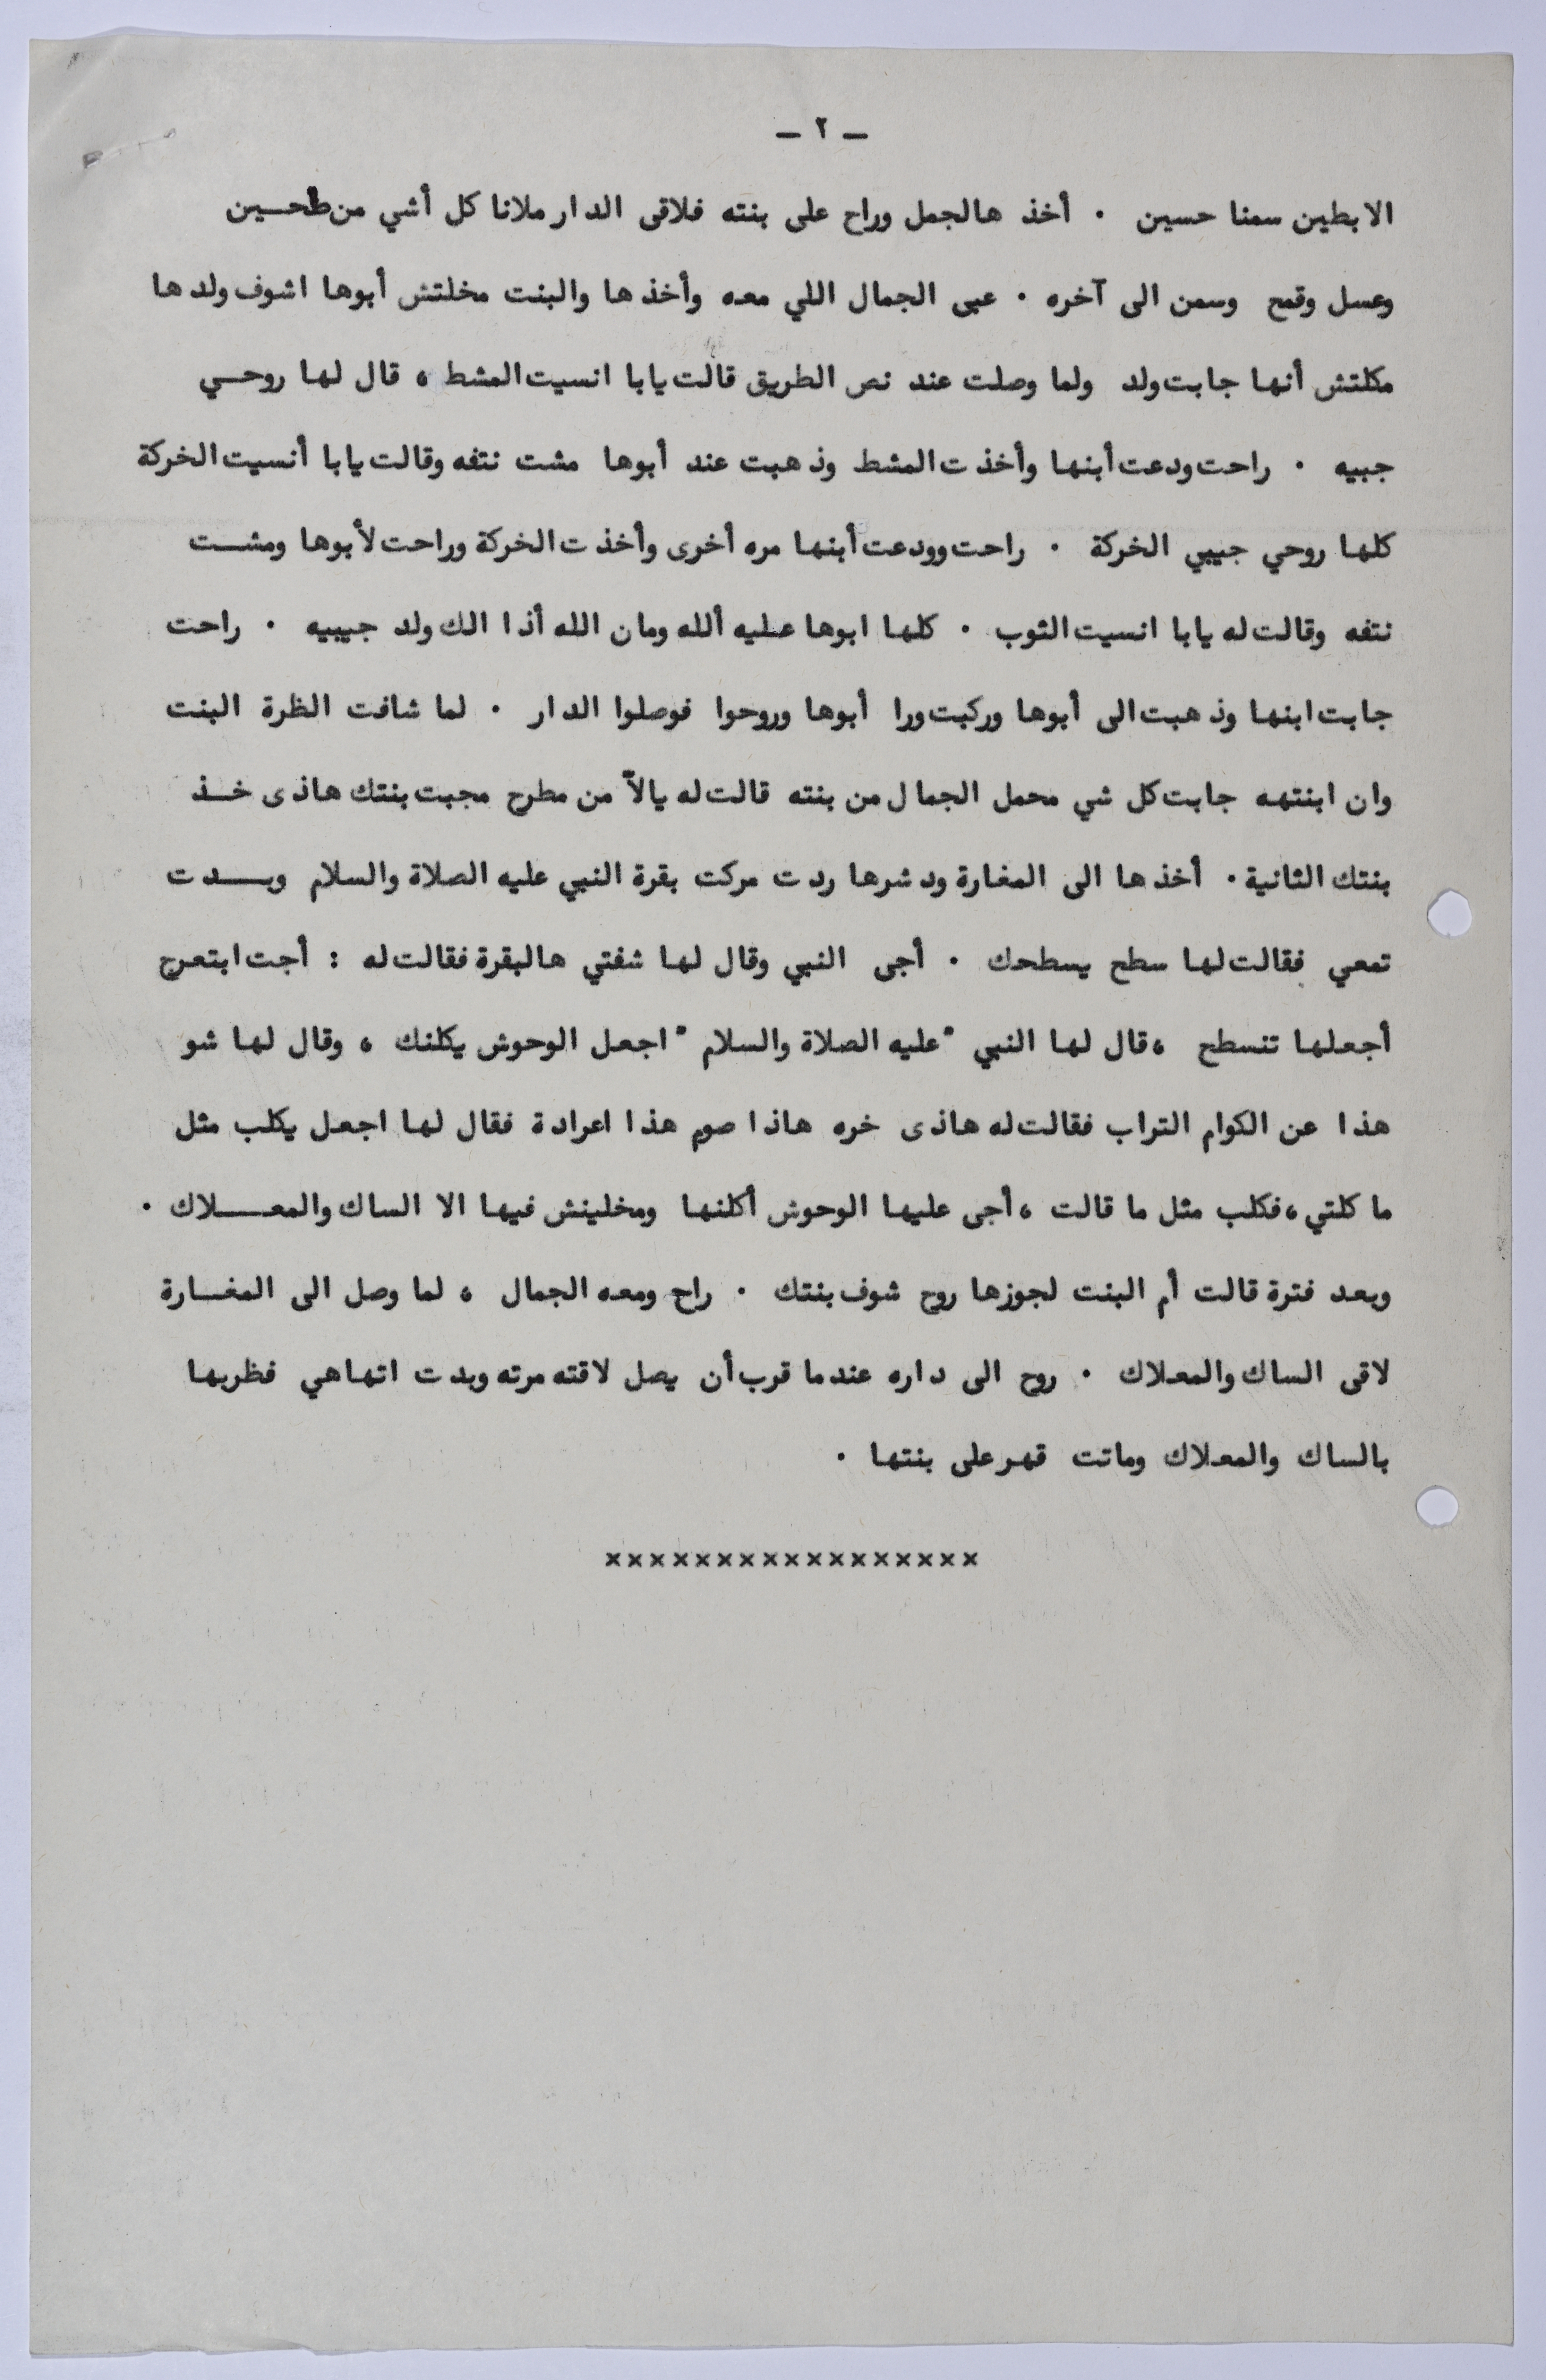 — ٢ —
الابطين سمنا حسين . أخذ هالجمل وراح على بنته فلاقى الدار ملانا كل أشي من طحين
وعسل وقمح وسمن الى آخره . عبى الجمال اللي معه وأخذها والبنت مخلتش أبوها اشوف ولدها
مكلتش أنها جابت ولد ولما وصلت عند نص الطريق قالت يابا انسيت المشط ، قال لها روحي
جبيه . راحت ودعت أبنها وأخذت المشط وذهبت عند أبوها مشت نتفه وقالت يابا أنسيت الخركة
كلها روحي جيبي الخركة . راحت وودعت أبنها مره أخرى وأخذت الخركة وراحت لأبوها ومشت
نتفه وقالت له يابا انسيت الثوب . كلها ابوها عليه ألله ومان الله أذا الك ولد جيبيه . راحت
جابت ابنها وذهبت الى أبوها وركبت ورا أبوها وروحوا فوصلوا الدار . لما شافت الظرة البنت
وان ابنتهه جابت كل شي محمل الجمال من بنته قالت له يالآ من مطرح مجبت بنتك هاذى خذ
بنتك الثانية . أخذها الى المغارة ودشرها ردت مركت بقرة النبي عليه الصلاة والسلام وبدت
تمعي فقالت لها سطح يسطحك . أجى النبي وقال لها شفتي هالبقرة فقالت له : أجت ابتعرج
أجعلها تنسطح ، قال لها النبي "عليه الصلاة والسلام" اجعل الوحوش يكلنك ، وقال لها شو
هذا عن الكوام التراب فقالت له هاذى خره هاذا صوم هذا اعرادة فقال لها اجعل يكلب مثل
ما كلتي ، فكلب مثل ما قالت ، أجى عليها الوحوش أكلنها ومخلينش فيها الا الساك والمعلاك .
وبعد فترة قالت أم البنت لجوزها روح شوف بنتك . راح ومعه الجمال ، لما وصل الى المغارة
لاقى الساك والمعلاك . روح الى داره عندما قرب أن يصل لاقته مرته وبدت اتهاهي فظربها
بالساك والمعلاك وماتت قهر على بنتها .
×××××××××××××××××